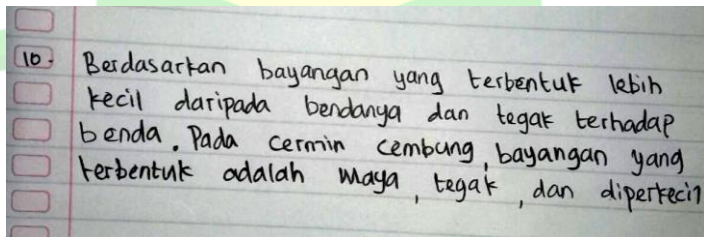 10. Berdasarkan bayangan yang terbentuk lebih
kecil daripada bendanya dan tegak terhadap
benda. Pada cermin cembung, bayangan yang
terbentuk adalah maya, tegak, dan diperkecil